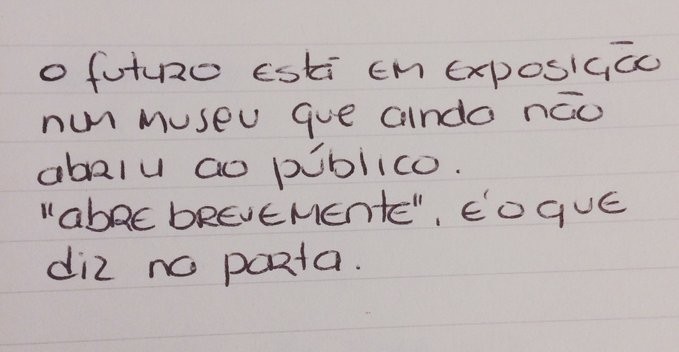 o futuro está em exposição
num museu que ainda não
abriu ao público.
"abre brevemente", é o que
diz na porta.